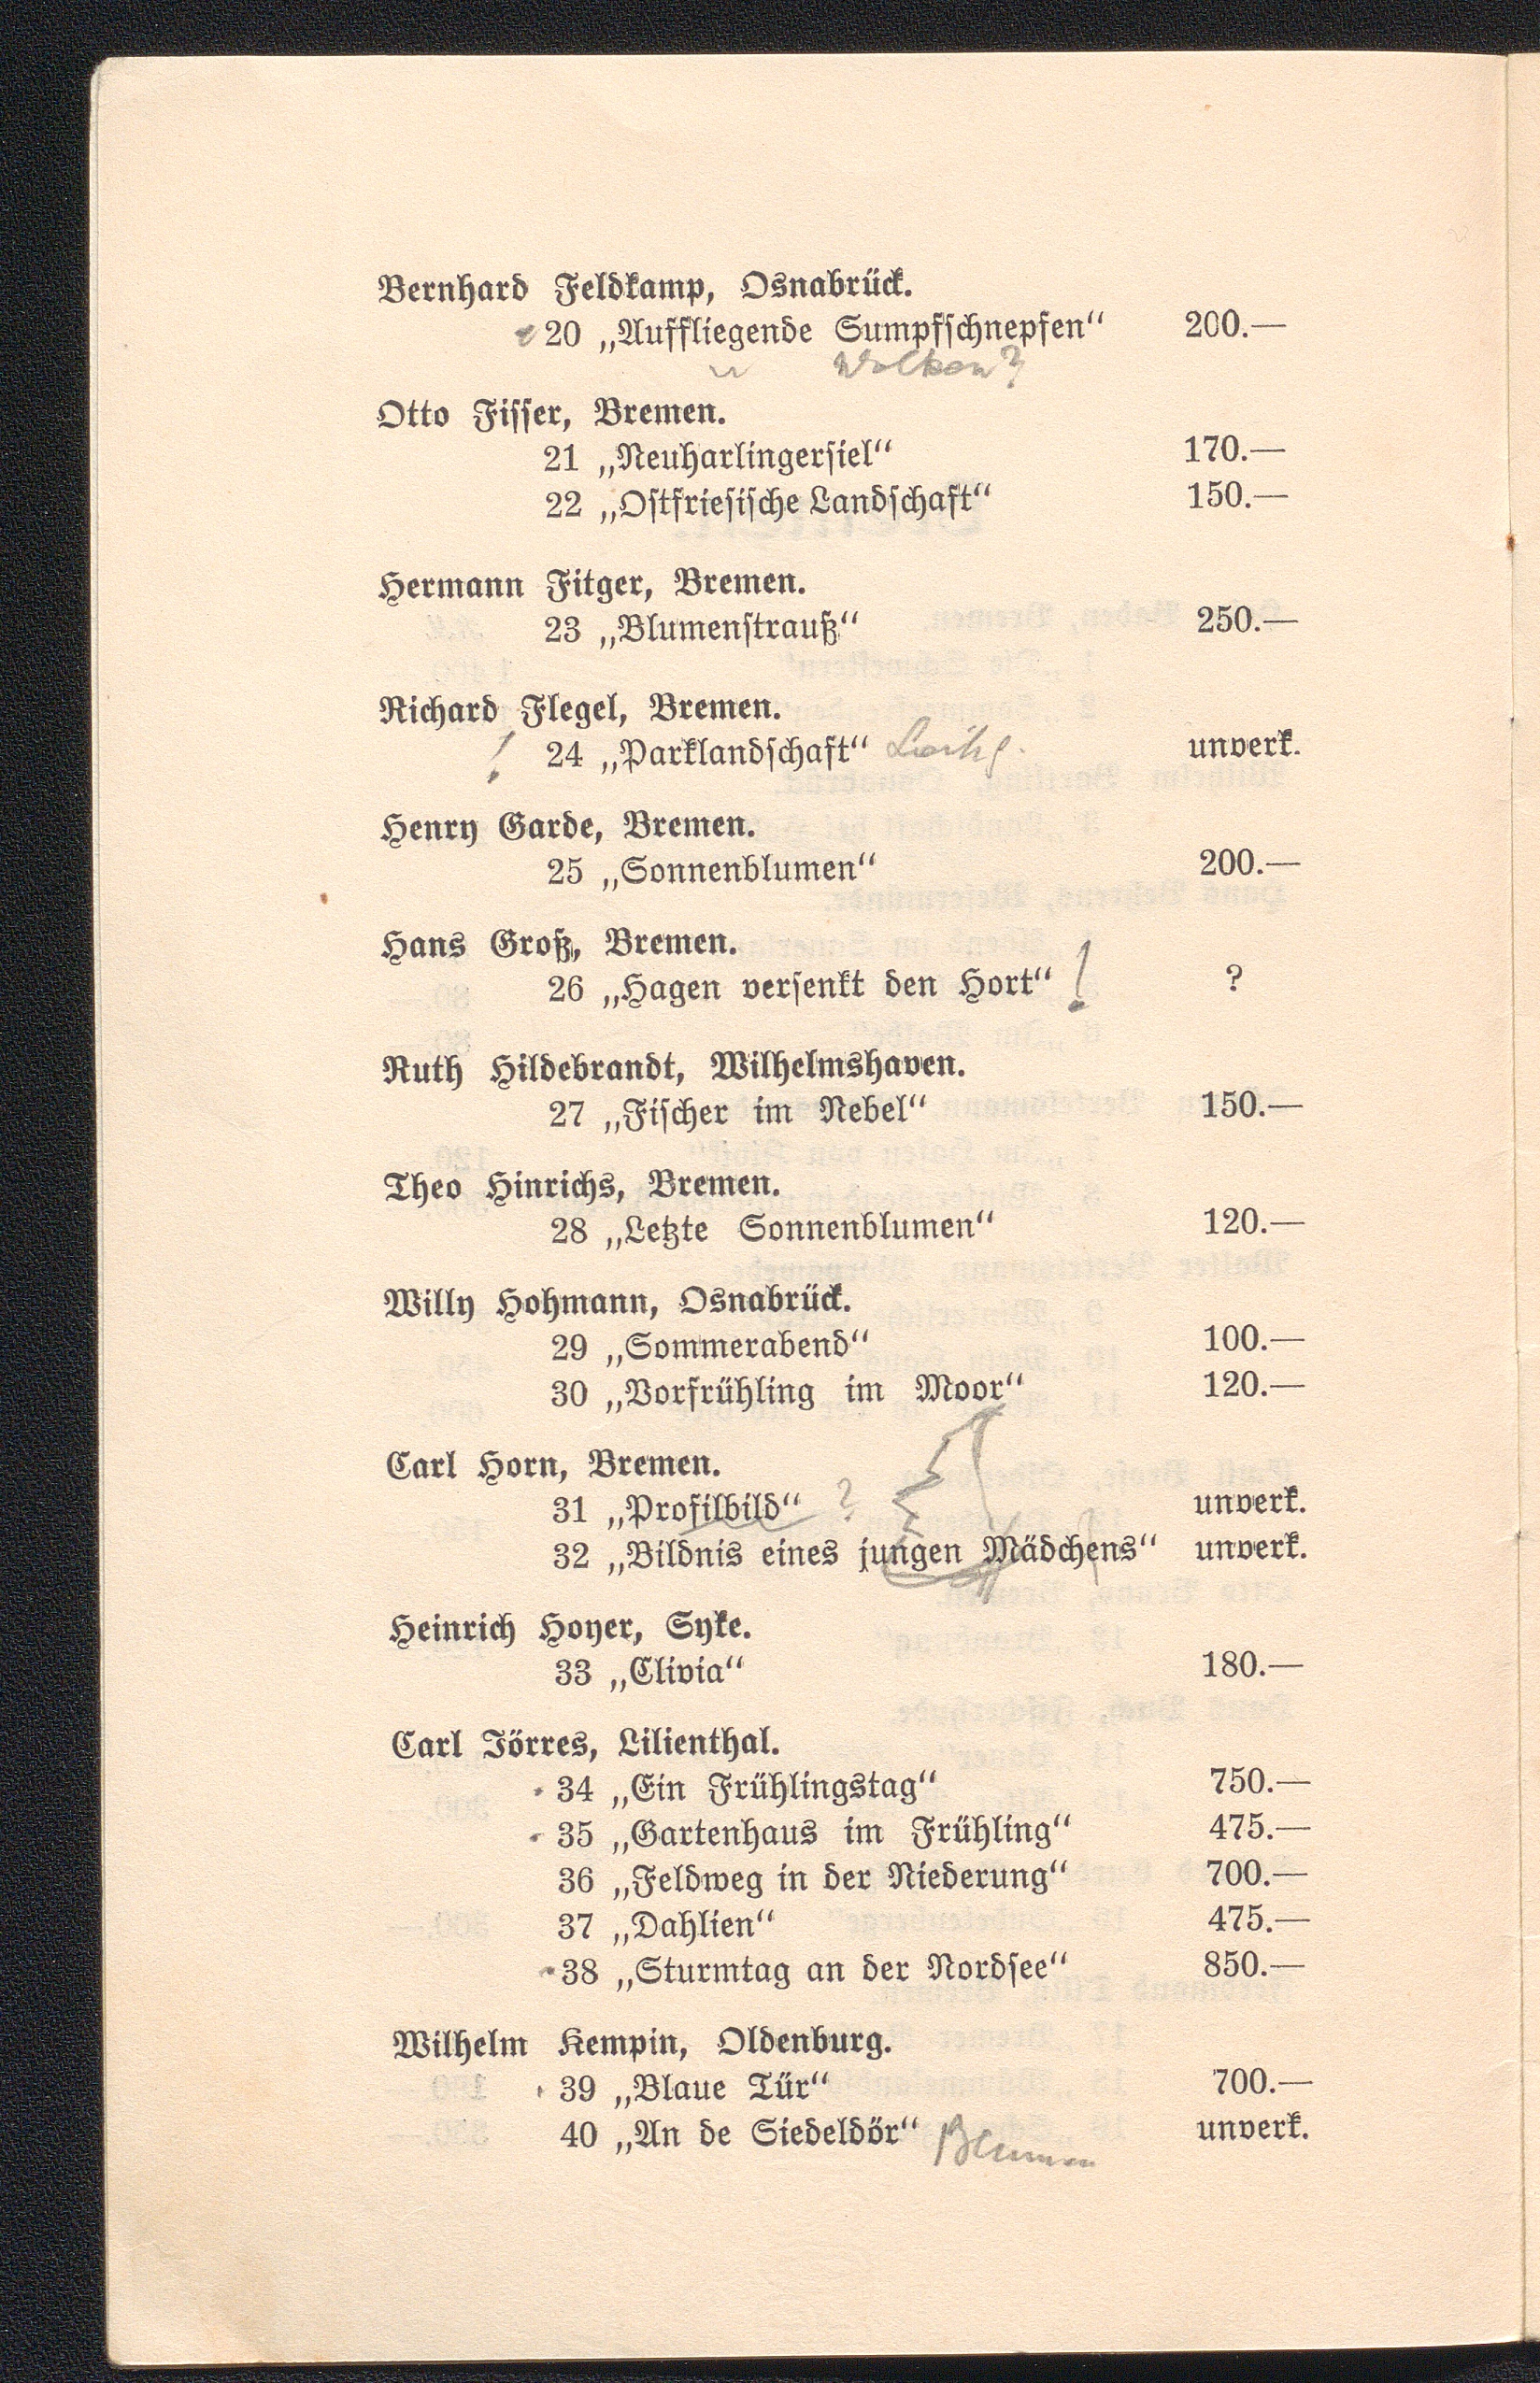 Bernhard Feldkamp, Osnabrück.
20 „Auffliegende Sumpfschnepfen“ 200.—
Wolken?
Otto Fisser, Bremen.
21 „Neuharlingersiel“ 170.—
22 „Ostfriesische Landschaft“ 150.—
Hermann Fitger, Bremen.
23 „Blumenstrauß“ 250.—
Richard Flegel, Bremen.
! 24 „Parklandschaft“ unverk.
Henry Garde, Bremen.
25 „Sonnenblumen“ 200.—
Hans Groß, Bremen.
26 „Hagen versenkt den Hort“ ! ?
Ruth Hildebrandt, Wilhelmshaven.
27 „Fischer im Nebel“ 150.—
Theo Hinrichs, Bremen.
28 „Letzte Sonnenblumen“ 120.—
Willy Hohmann, Osnabrück.
29 „Sommerabend“ 100.—
30 „Vorfrühling im Moor“ 120.—
Carl Horn, Bremen.
31 „Profilbild“ ? unverk.
32 „Bildnis eines jungen Mädchens“ unverk.
Heinrich Hoyer, Syke.
33 „Clivia“ 180.—
Carl Jörres, Lilienthal.
34 „Ein Frühlingstag“ 750.—
35 „Gartenhaus im Frühling“ 475.—
36 „Feldweg in der Niederung“ 700.—
37 „Dahlien“ 475.—
38 „Sturmtag an der Nordsee“ 850.—
Wilhelm Kempin, Oldenburg.
39 „Blaue Tür“ 700.—
40 „An de Siedeldör“ Blumen unverk.